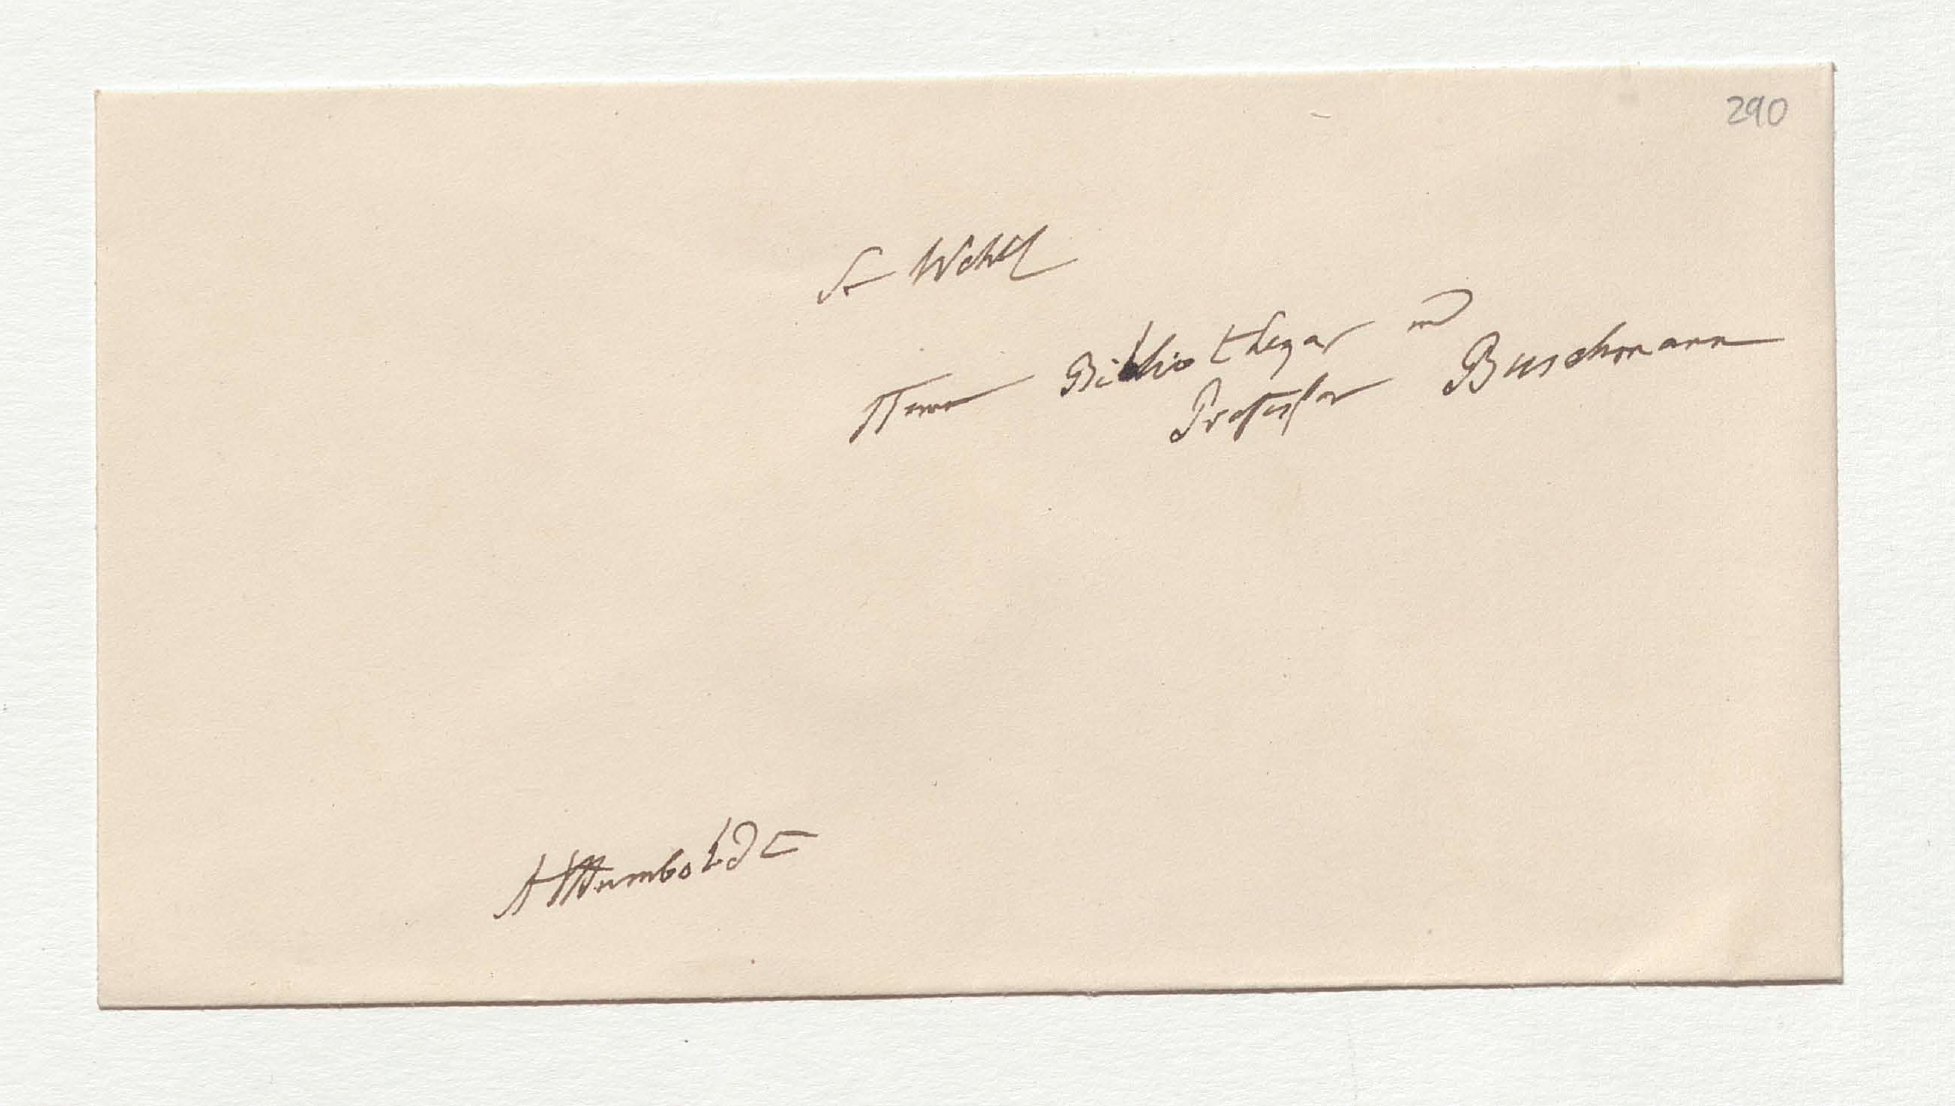 290
Sr Wohl
Herrn Bibliothegar und
Professor Buschmann
AHumboldt